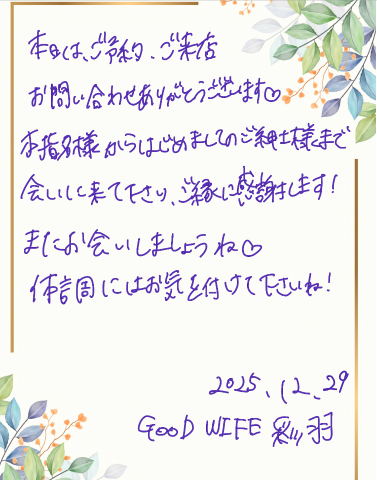 本日は、ご予約、ご来店
お問い合わせありがとうございます♡
本指名様からはじめましてのご紳士様まで
会いに来て下さり、ご縁に感謝します!
またお会いしましょうね♡
体調にはお気を付けて下さいね!
2025.12.29
GOOD WIFE 彩羽